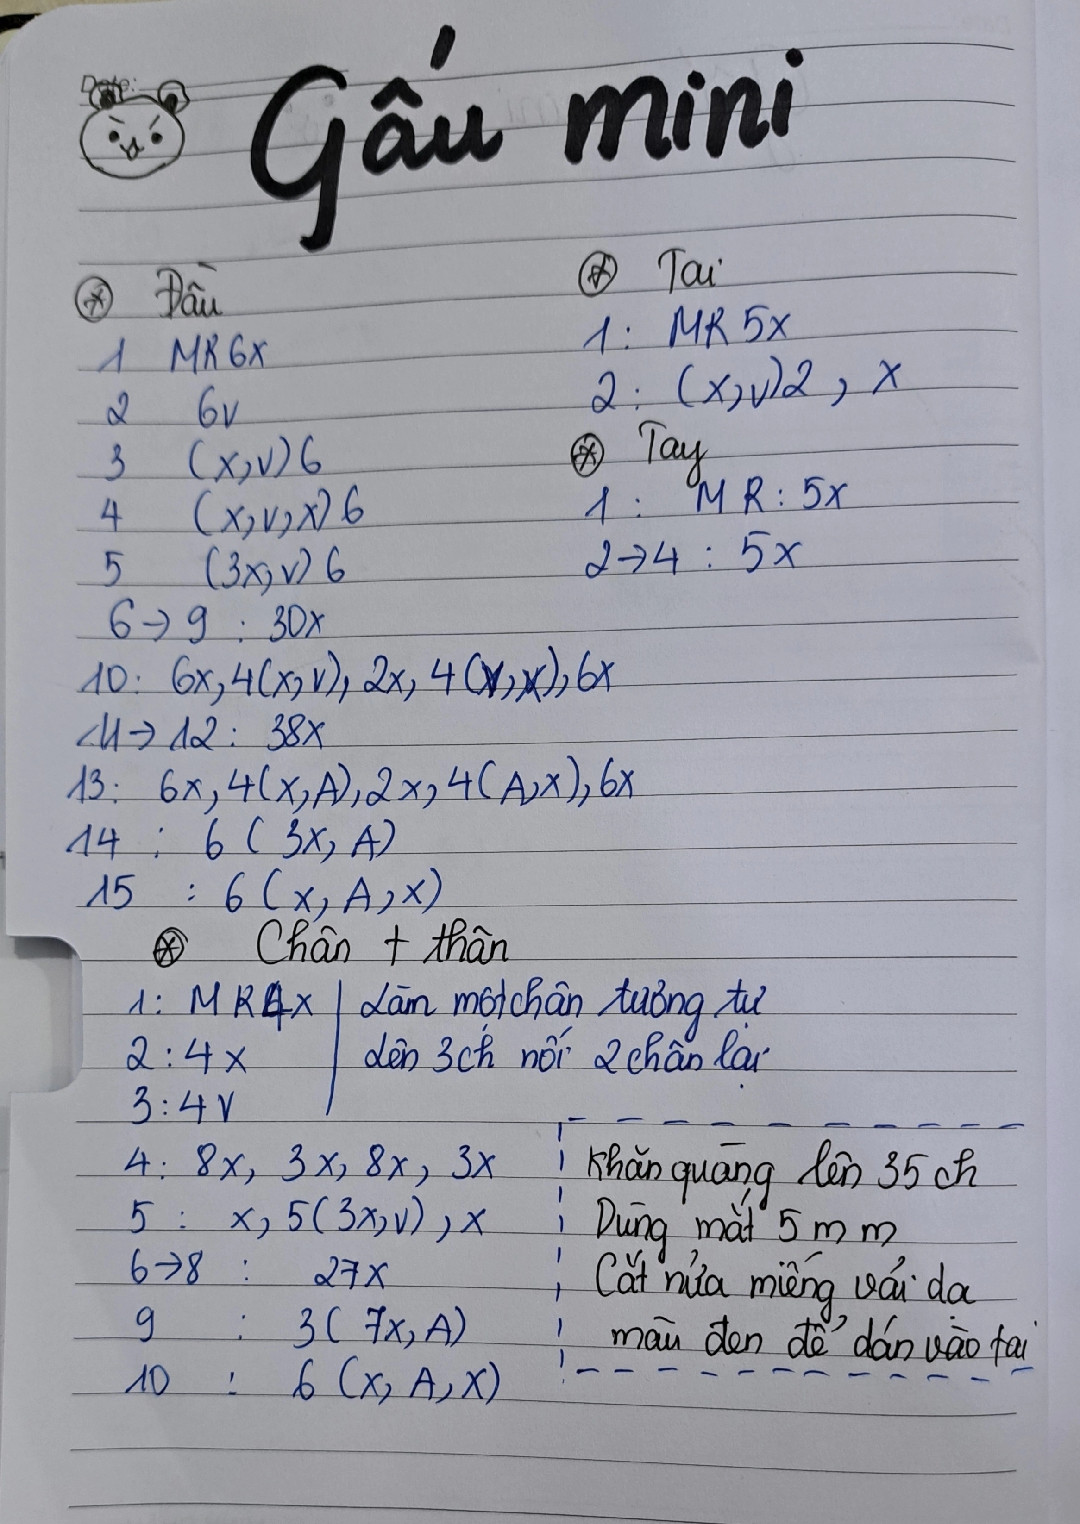 Date:
Gấu mini
Đầu
1 MR 6x
2 6v
3 (x,v)6
4 (x,v,x)6
5 (3x,v)6
6→9 : 30x
10: 6x,4(x,v),2x,4(v,x),6x
11→12: 38x
13: 6x,4(x,A),2x,4(A,x),6x
14 : 6(3x,A)
15 : 6(x,A,x)
Tai
1: MR 5x
2: (x,v)2, x
Tay
1: MR: 5x
2→4 : 5x
Chân + thân
1: MR 4x
2: 4x
3: 4v
Làm một chân tương tự
Lên 3ch nối 2 chân lại
4: 8x, 3x, 8x, 3x
5 : x, 5(3x,v), x
6→8 : 27x
9 : 3(7x,A)
10 : 6(x,A,x)
Khăn quàng lên 35 ch
Dùng mắt 5 mm
Cắt nửa miếng vải da
màu đen để dán vào tai